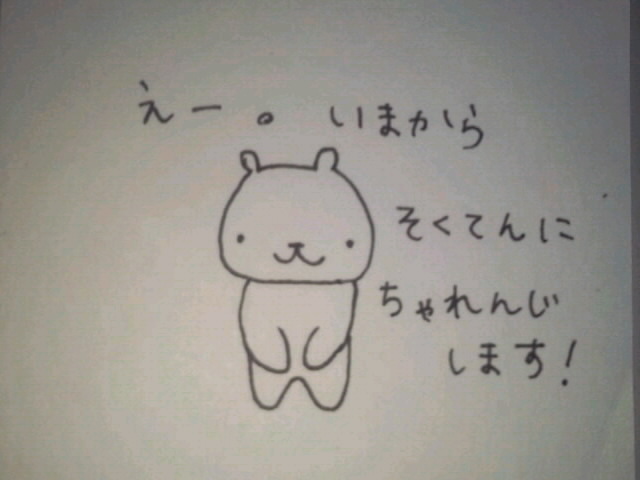 えー。いまから
そくてんに
ちゃれんじ
します!